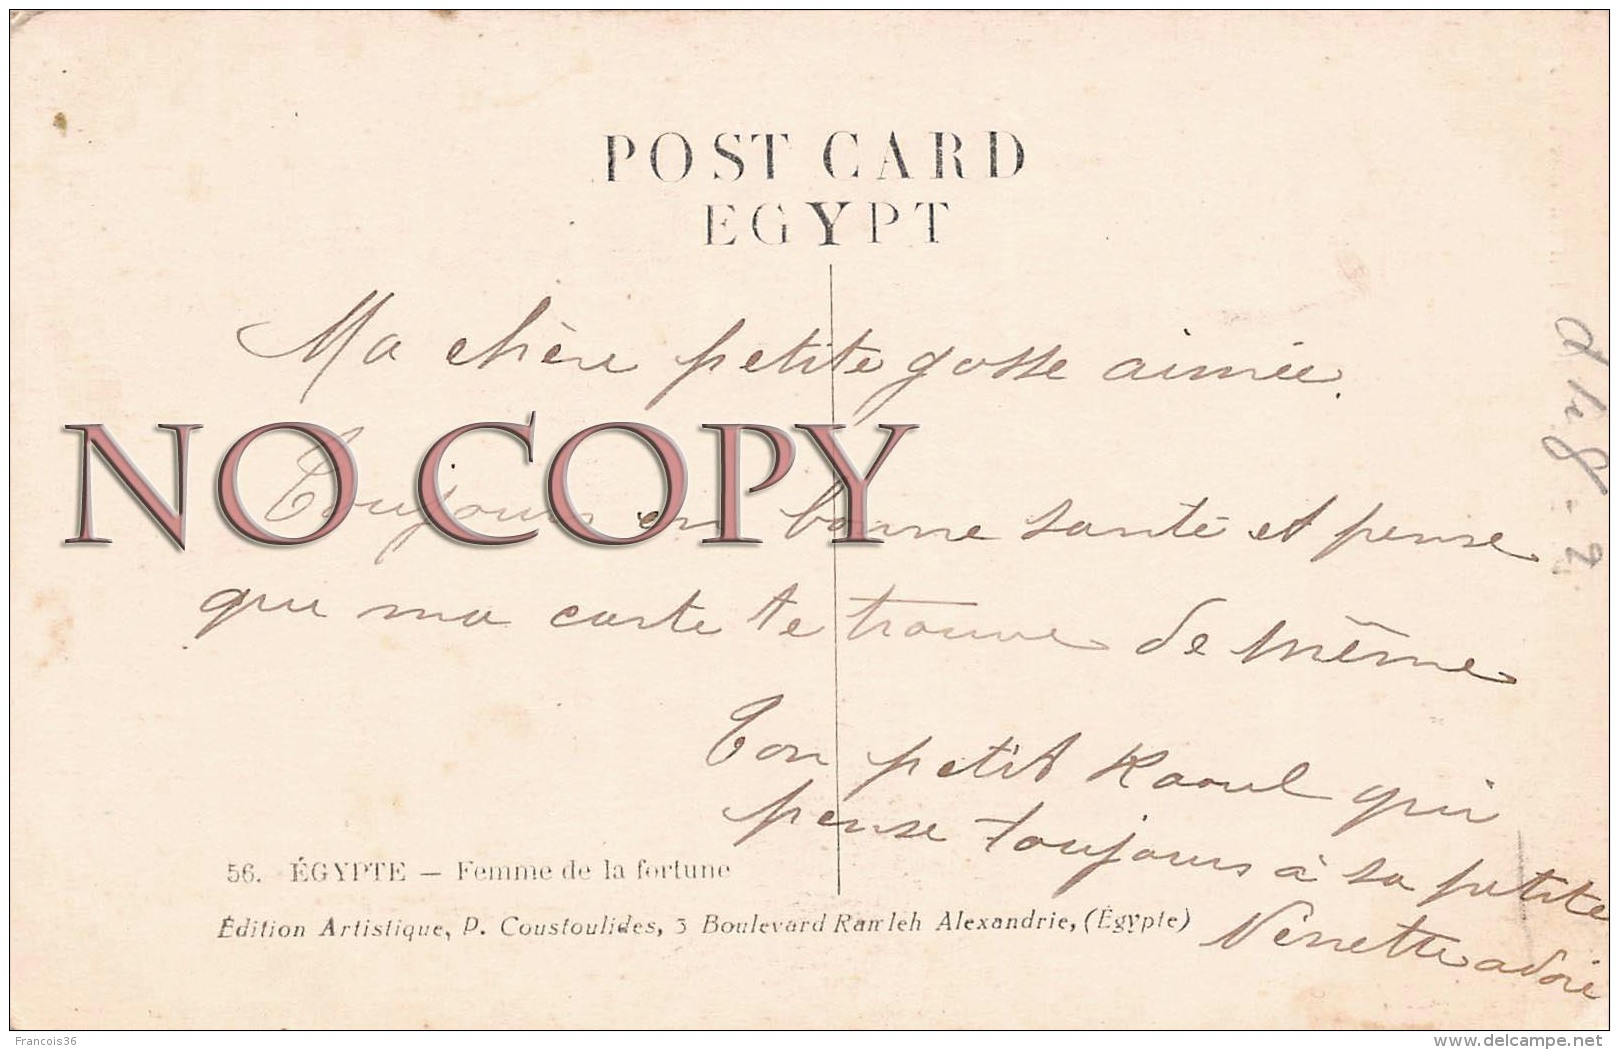 POST CARD
EGYPT
Ma chère petite gosse aimée.
NO COPY
Toujours en bonne santé et pense
que ma carte te trouve de même
Ton petit Raoul qui
pense toujours à sa petite
Nénette adoré
56. ÉGYPTE — Femme de la fortune
Édition Artistique, P. Coustoulides, 3 Boulevard Ramleh Alexandrie, (Égypte)
Francois36
www.delcampe.net